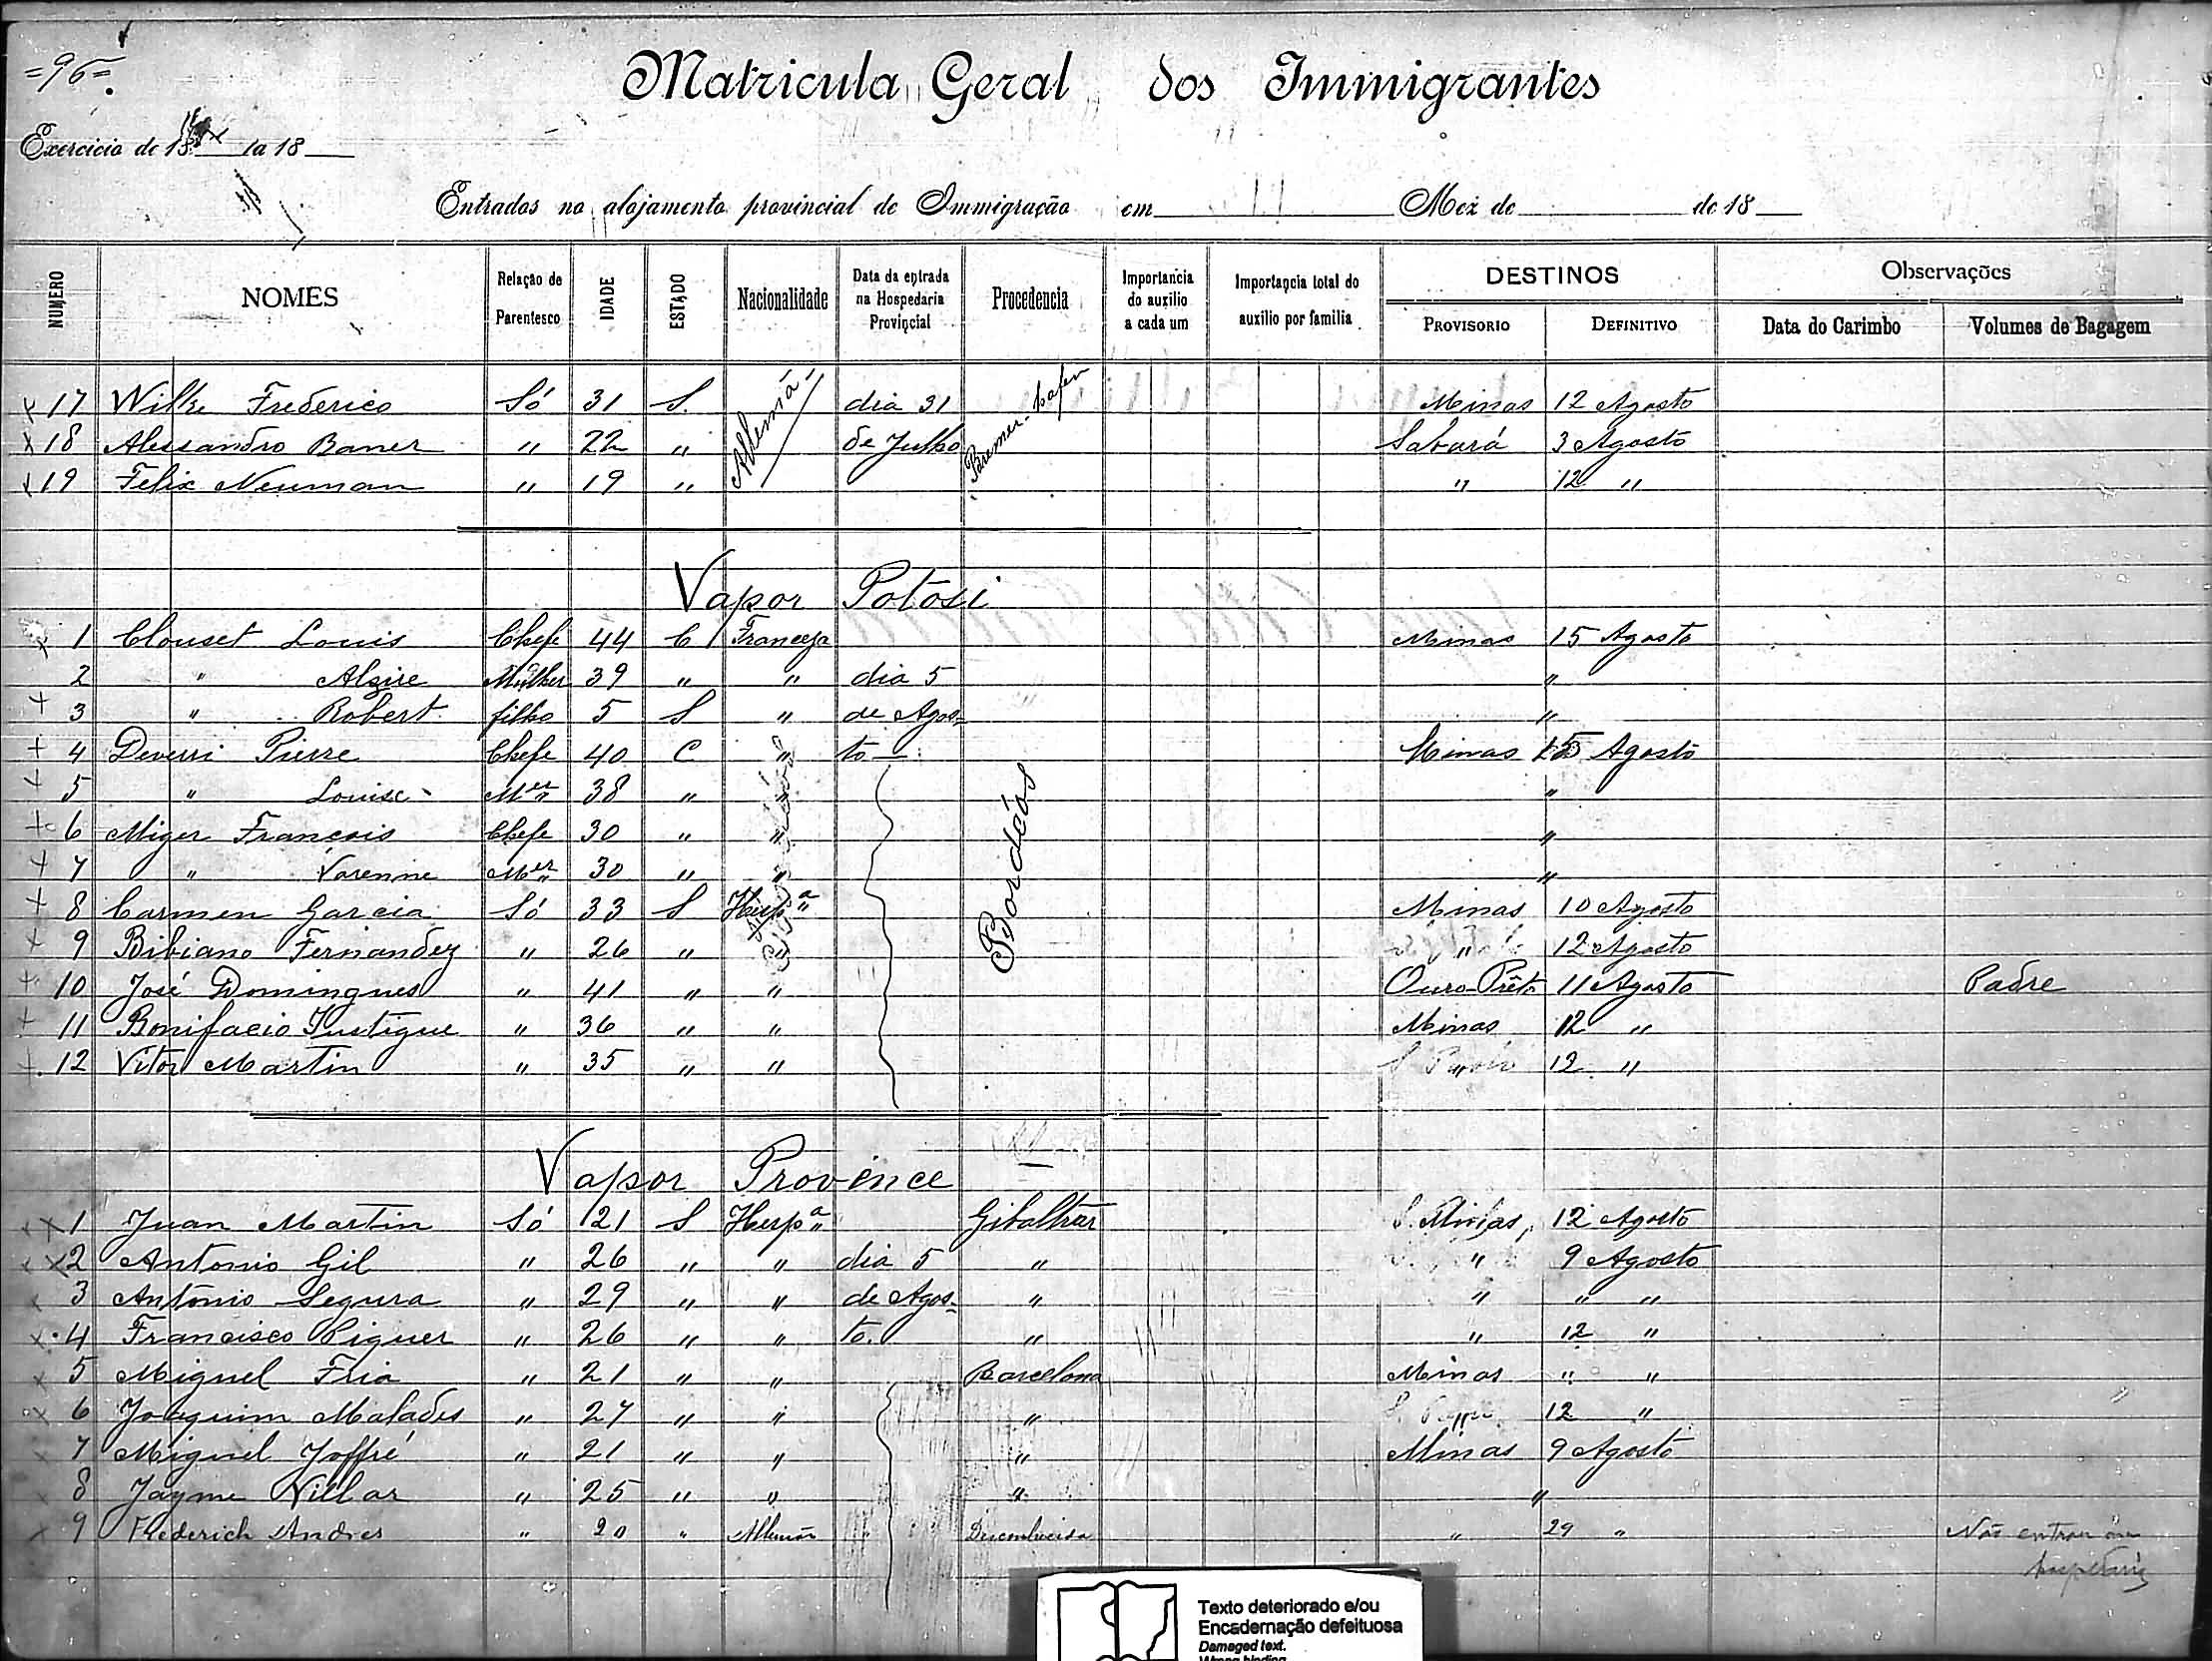 =96=
Matricula Geral dos Immigrantes
Exercicio de 18 la 18
Entrados no alojamento provincial de Immigração em Mez de de 18
NUMERO NOMES Relação de Parentesco IDADE ESTADO Nacionalidade Data da entrada na Hospedaria Provincial Procedencia Importancia do auxilio a cada um Importancia total do auxilio por familia DESTINOS PROVISORIO DEFINITIVO Observações Data do Carimbo Volumes de Bagagem
17 Wilke Frederico Só 31 S. Allemã dia 31 Bremer-hafen Minas 12 Agosto
18 Alessandro Baner " 22 " de Julho Sabará 3 Agosto
19 Felix Neuman " 19 " " 12 "
Vapor Potosi
1 Clouset Louis Chefe 44 C Franceza Minas 15 Agosto
2 " Alzire Mulher 39 " " dia 5 "
3 " Robert filho 5 S " de Agos- "
4 Deverri Pierre Chefe 40 C " to Minas 15 Agosto
5 " Louise Mer 38 " " Bordéos "
6 Miger François Chefe 30 " " "
7 " Varenne Mer 30 " " "
8 Carmen Garcia Só 33 S Hesp.a Minas 10 Agosto
9 Bibiano Fernandez " 26 " " " 12 Agosto
10 José Domingues " 41 " " Ouro-Prêto 11 Agosto Padre
11 Bonifacio Iustigue " 36 " " Minas 12 "
12 Vitor Martin " 35 " " " 12 "
Vapor Provénce
1 Juan Martin Só 21 S Hesp.a Gibaltrar Minas 12 Agosto
2 Antonio Gil " 26 " " dia 5 " " 9 Agosto
3 Antonio Segura " 29 " " de Agos- " " " "
4 Francisco Ciquer " 26 " " to. " " 12 "
5 Miguel Fria " 21 " " Barcelona Minas " "
6 Joaquim Malades " 27 " " " " 12 "
7 Miguel Joffré " 21 " " " Minas 9 Agosto
8 Jayme Villar " 25 " " " "
9 Frederich Andres " 20 " Allemão " Desconhecida " 29 " Não entrou na
hospedaria
Texto deteriorado e/ou
Encadernação defeituosa
Damaged text.
Wrong binding